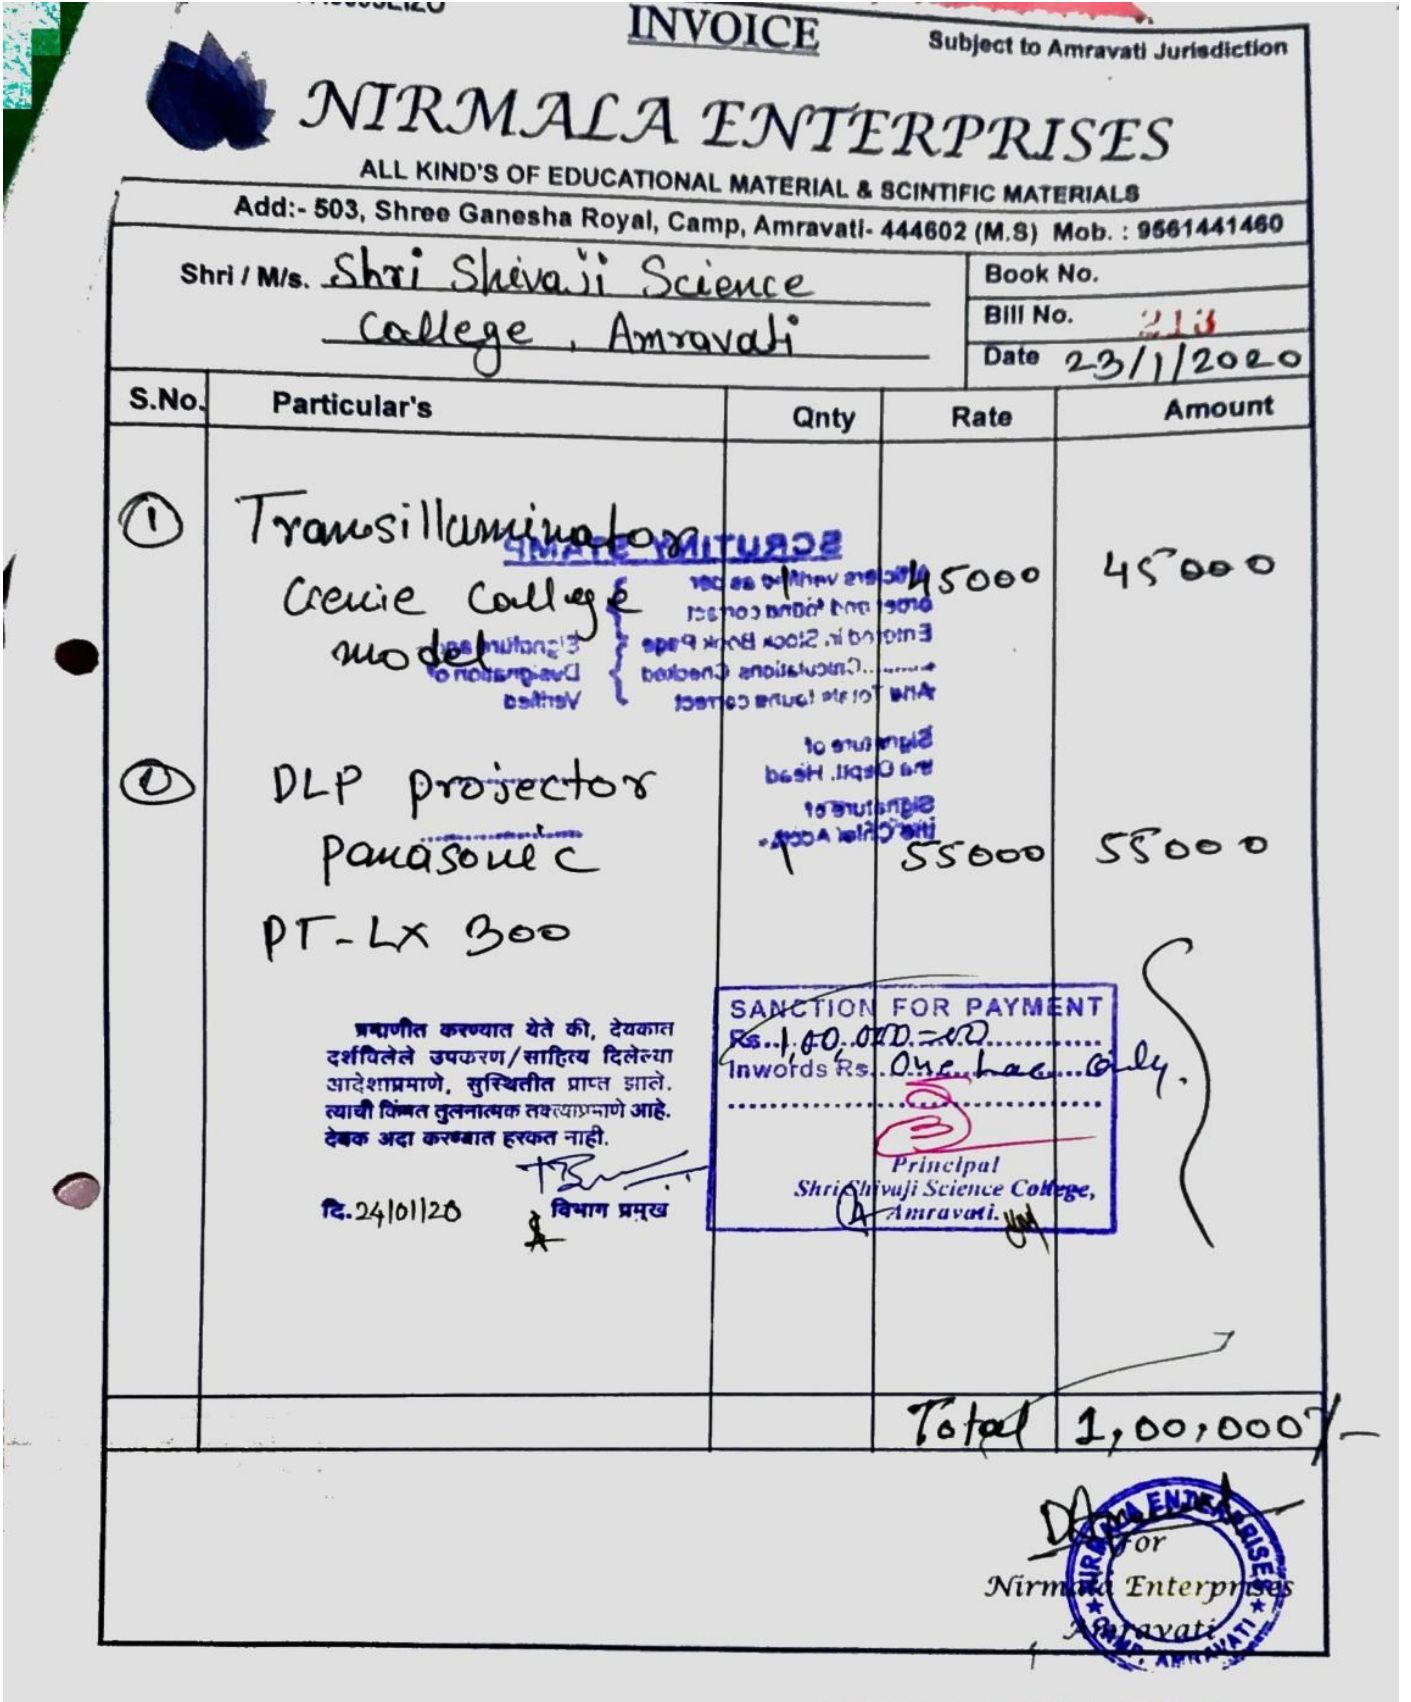 INVOICE
Subject to Amravati Jurisdiction
NIRMALA ENTERPRISES
ALL KIND'S OF EDUCATIONAL MATERIAL & SCINTIFIC MATERIALS
Add:- 503, Shree Ganesha Royal, Camp, Amravati- 444602 (M.S) Mob. : 9561441460
Shri / M/s. Shri Shivaji Science
College, Amravati
Book No.
Bill No. 213
Date 23/1/2020
S.No. Particular's Qnty Rate Amount
1 Transilluminator
College 1 45000 45000
model
SCRUTINY STAMP
Entered in Stock Book Page
Calculations Checked
Verified
Signature of
Signature of
DLP projector
Panasonic 1 55000 55000
PT-LX 300
प्रमाणीत करण्यात येते की, देयकात
दर्शविलेले उपकरण/साहित्य दिलेल्या
आदेशाप्रमाणे, सुस्थितीत प्राप्त झाले.
त्याची किंमत तुलनात्मक तक्त्याप्रमाणे आहे.
देयक अदा करण्यात हरकत नाही.
दि. 24/01/20 विभाग प्रमुख
SANCTION FOR PAYMENT
Rs. 1,00,000=00
Inwords Rs. One Lac only.
Principal
Shri Shivaji Science College,
Amravati.
Total 1,00,000/-
For
Nirmala Enterprises
Amravati
NIRMALA ENTERPRISES
CAMP, AMRAVATI